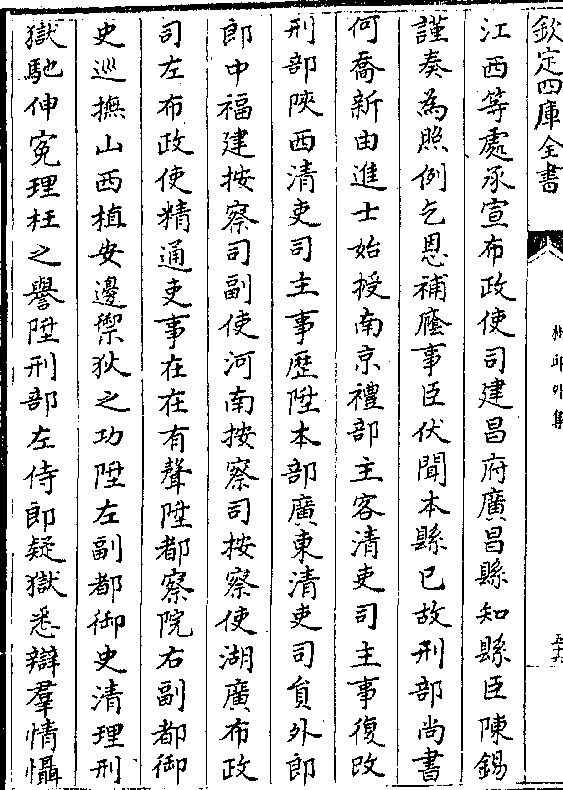 欽定四庫全書
椒邱外集
五十六
江西等處承宣布政使司建昌府廣昌縣知縣臣陳錫
謹奏為照例乞恩補廕事臣伏聞本縣已故刑部尚書
何喬新由進士始授南京禮部主客清吏司主事復改
刑部陝西清吏司主事歷陞本部廣東清吏司員外郎
郎中福建按察司副使河南按察司按察使湖廣布政
司左布政使精通吏事在在有聲陞都察院右副都御
史巡撫山西植安邊禦狄之功陞左副都御史清理刑
獄馳伸寃理枉之譽陞刑部左侍郎疑獄悉辯羣情懾